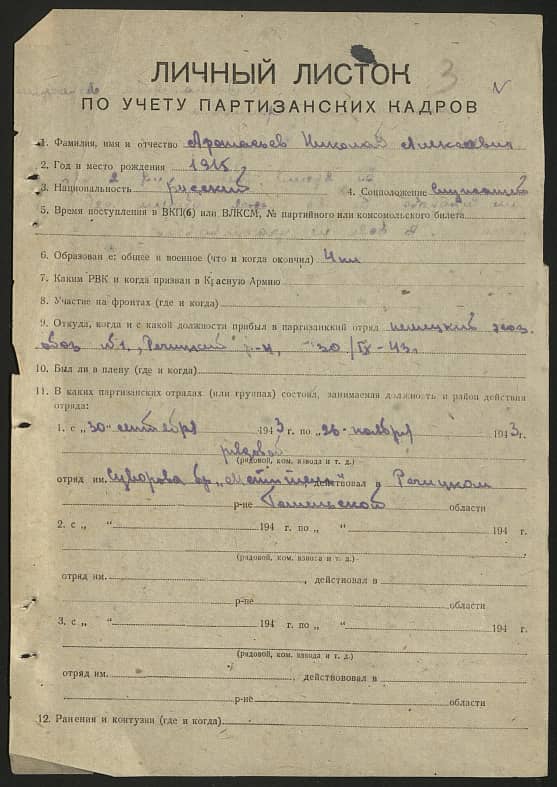 3
N
ЛИЧНЫЙ ЛИСТОК
ПО УЧЕТУ ПАРТИЗАНСКИХ КАДРОВ
1. Фамилия, имя и отчество Афанасьев Николай Алексеевич
2. Год и место рождения 1915
3. Национальность русский 4. Соцположение служащий
5. Время поступления в ВКП(б) или ВЛКСМ, № партийного или комсомольского билета
6. Образован е: общее и военное (что и когда окончил) 4 кл
7. Каким РВК и когда призван в Красную Армию
8. Участие на фронтах (где и когда)
9. Откуда, когда и с какой должности прибыл в партизанккий отряд немецкий
обоз №1, Речицкий р-н, 30/IX-43г.
10. Был ли в плену (где и когда)
11. В каких партизанских отралах (или группах) состоял, занимаемая должность и район действия
отряда:
1. с „30“ сентября 1943 г. по „26“ ноября 1943 г.
рядовой
(рядовой, ком. взвода и т. д.)
отряд им. Суворова бр. действовал в Речицком
р-не Гомельской области
2. с „ “ 194 г. по „ “ 194 г.
(рядовой, ком. взвода и т. д.)
отряд им. , действовал в
р-не области
3. с „ “ 194 г. по „ “ 194 г.
(рядовой, ком. взвода и т. д.)
отряд им. , действововал в
р-не области
12. Ранения и контузии (где и когда)